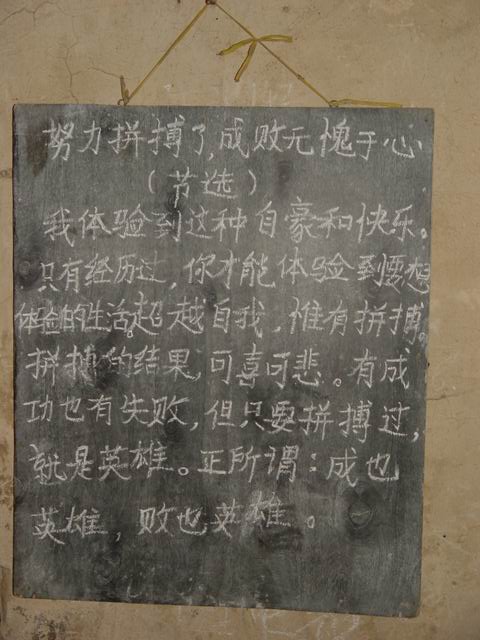 努力拼搏了,成败无愧于心
（节选）
我体验到这种自豪和快乐。
只有经历过,你才能体验到要想
体验的生活。超越自我,惟有拼搏。
拼搏的结果,可喜可悲。有成
功也有失败,但只要拼搏过,
就是英雄。正所谓：成也
英雄，败也英雄。